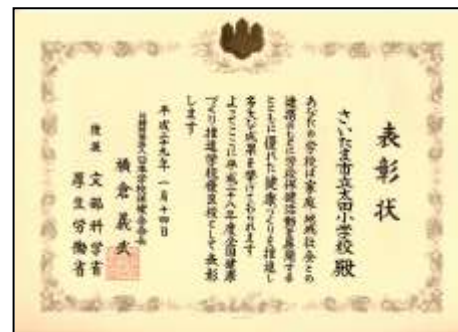 表彰状
さいたま市立太田小学校 殿
あなたの学校は家庭・地域社会との
連携のもとに学校保健活動を展開する
とともに優れた健康づくりを推進し
多大な成果を挙げておられます
よってここに平成二十八年度全国健康
づくり推進学校優良校として表彰
します
平成二十九年一月十四日
公益財団法人日本学校保健会会長
横倉義武
後援 文部科学省
厚生労働省